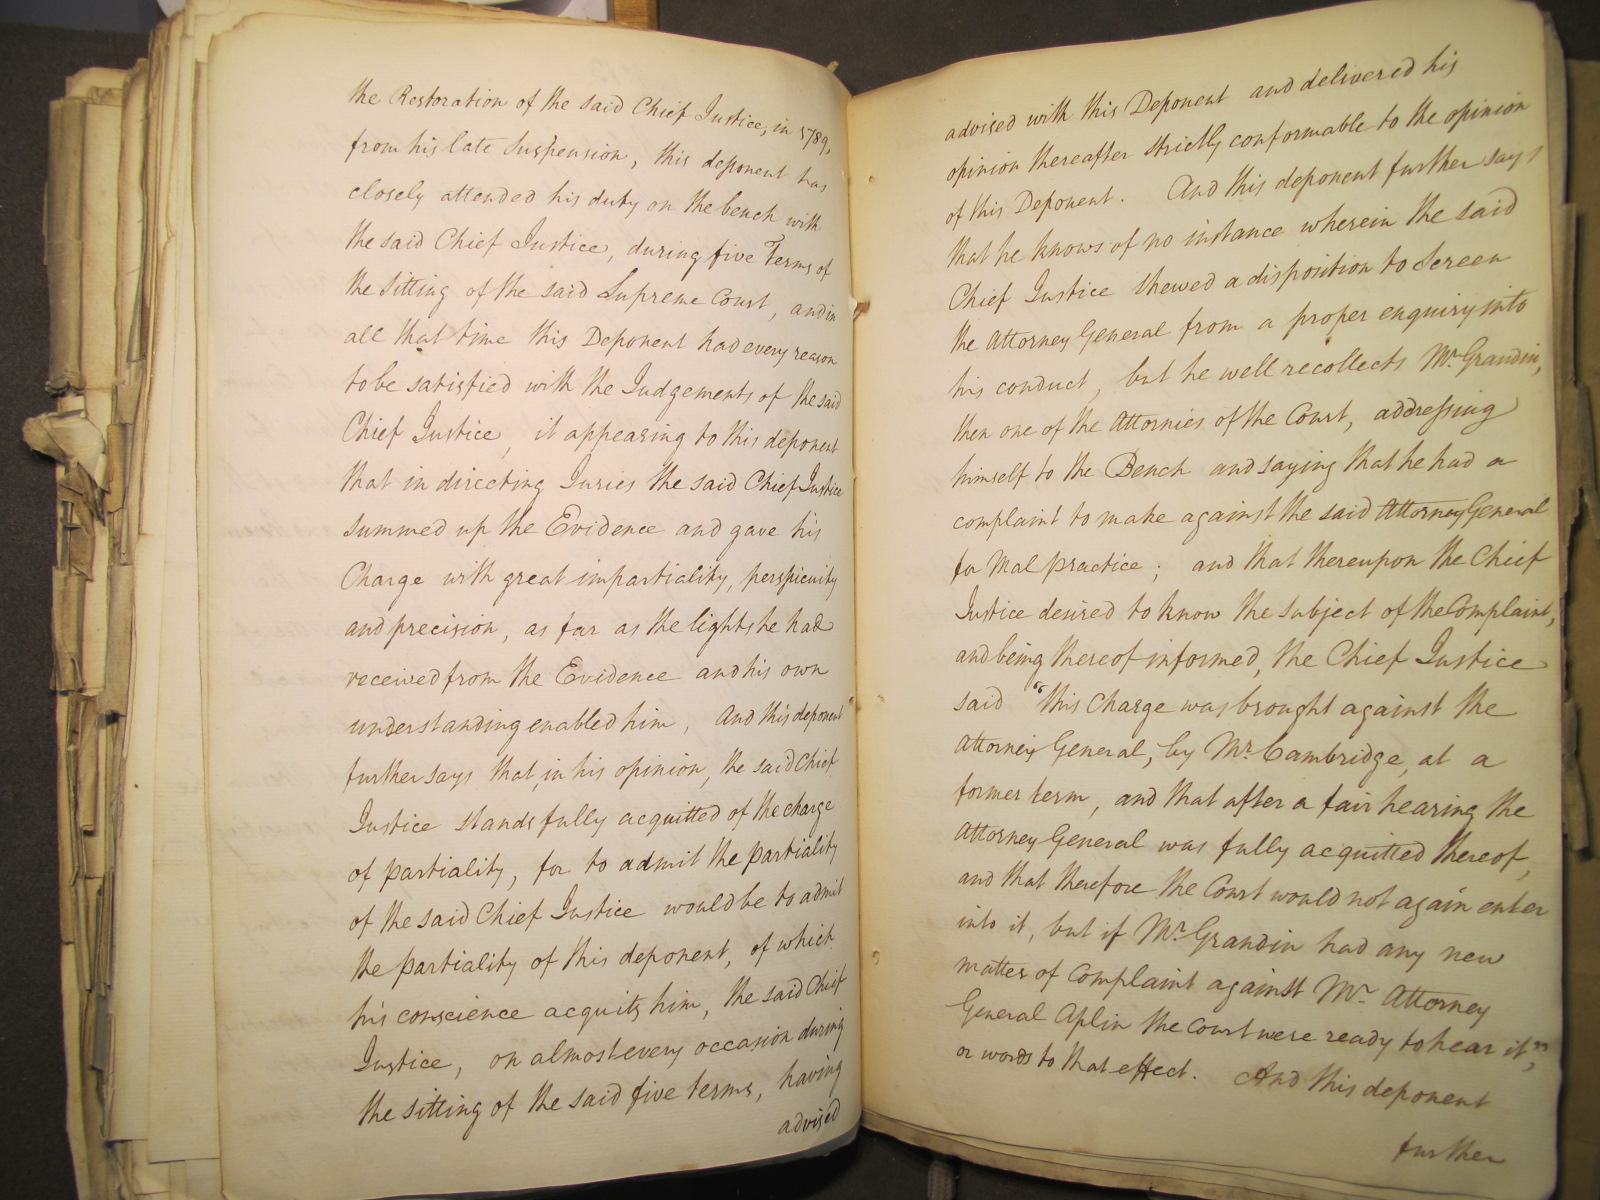 the Restoration of the said Chief Justice, in 1789,
from his late Suspension, this deponent has
closely attended his duty on the bench with
the said Chief Justice, during five Terms of
the Sitting of the said Supreme Court, and in
all that time this Deponent had every reason
to be satisfied with the Judgements of the said
Chief Justice, it appearing to this deponent
that in directing Juries the said Chief Justice
summed up the Evidence and gave his
Charge with great impartiality, perspicuity
and precision, as far as the lights he had
received from the Evidence and his own
understanding enabled him, And this deponent
further says that, in his opinion, the said Chief
Justice stands fully acquitted of the charge
of partiality, for to admit the partiality
of the said Chief Justice would be to admit
the partiality of this deponent, of which
his conscience acquits him, the said Chief
Justice, on almost every occasion during
the sitting of the said five terms, having
advised
advised with this Deponent and delivered his
opinion thereafter strictly conformable to the opinion
of this Deponent. And this deponent further says
that he knows of no instance wherein the said
Chief Justice shewed a disposition to Screen
the Attorney General from a proper enquiry into
his conduct, but he well recollects Mr. Grandin,
then one of the Attornies of the Court, addressing
himself to the Bench and saying that he had a
complaint to make against the said Attorney General
for Mal practice; and that thereupon the Chief
Justice desired to know the subject of the Complaint,
and being thereof informed, the Chief Justice
said "this Charge was brought against the
Attorney General, by Mr. Cambridge, at a
former term, and that after a fair hearing the
Attorney General was fully acquitted thereof,
and that therefore the Court would not again enter
into it, but if Mr. Grandin had any new
matter of Complaint against Mr. Attorney
General Aplin the Court were ready to hear it",
or words to that effect. And this deponent
further